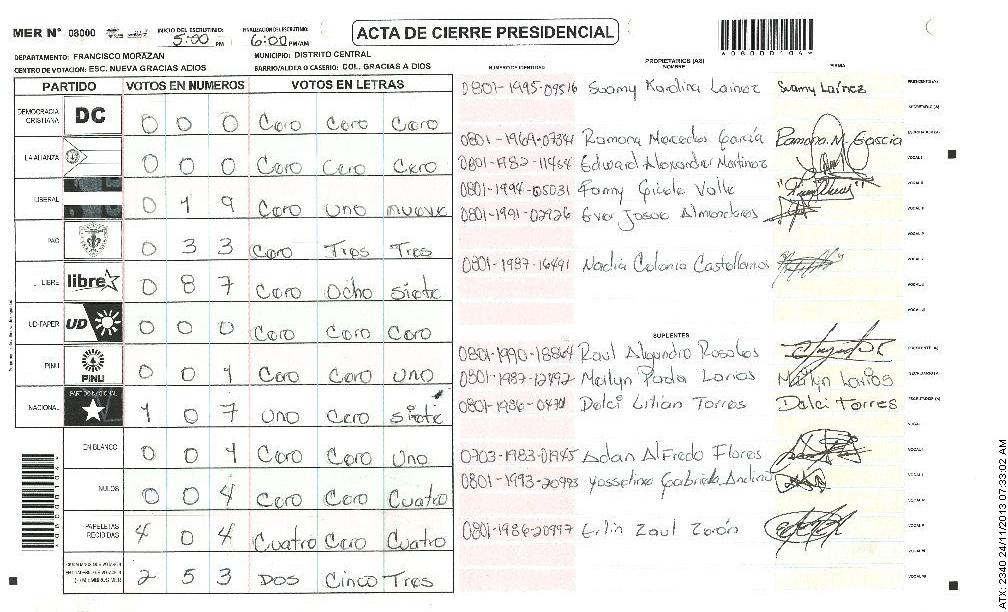 MER N° 08000 INICIO DEL ESCRUTINIO: 5:00 PM FINALIZACION DEL ESCRUTINIO: 6:00 PM/AM
ACTA DE CIERRE PRESIDENCIAL
DEPARTAMENTO: FRANCISCO MORAZAN MUNICIPIO: DISTRITO CENTRAL
CENTRO DE VOTACION: ESC. NUEVA GRACIAS ADIOS BARRIO/ALDEA O CASERIO: COL. GRACIAS A DIOS
PARTIDO VOTOS EN NUMEROS VOTOS EN LETRAS
DEMOCRACIA CRISTIANA DC 0 0 0 Cero Cero Cero
LA ALIANZA 0 0 0 Cero Cero Cero
LIBERAL 0 1 9 Cero Uno nueve
PAC 0 3 3 Cero Tres Tres
LIBRE libre 0 8 7 Cero Ocho Siete
UD-FAPER UD 0 0 0 Cero Cero Cero
PINU PINU 0 0 1 Cero Cero Uno
NACIONAL PARTIDO NACIONAL 1 0 7 Uno Cero Siete
EN BLANCO 0 0 1 Cero Cero Uno
NULOS 0 0 4 Cero Cero Cuatro
PAPELETAS RECIBIDAS 4 0 4 Cuatro Cero Cuatro
2 5 3 Dos Cinco Tres
NUMERO DE IDENTIDAD PROPIETARIOS (AS) NOMBRE FIRMA
0801-1995-09516 Suamy Karolina Lainez Suamy Laínez PRESIDENTE (A)
SECRETARIO (A)
0801-1969-07341 Ramona Mercedes García Ramona.M.García ESCRUTADOR (A)
0801-1982-11464 Edward Alexander Martinez VOCAL I
0801-1994-05031 Fanny Gicela Valle VOCAL II
0801-1991-02926 Ever Josue Almendares
0801-1987-16491 Nardia Colonia Castellanos
SUPLENTES
0801-1990-18864 Raul Alejandro Rosales PRESIDENTE (A)
0801-1987-12892 Meilyn Paola Larios Meilyn Larios SECRETARIO (A)
0801-1986- Delci Lilian Torres Delci Torres ESCRUTADOR (A)
0703-1983-01945 Adan Alfredo Flores
0801-1993-20993 Yosselin Gabriela
0801-1986-20997 Erlin Zaul
ATX: 2340 24/11/2013 07:33:02 AM